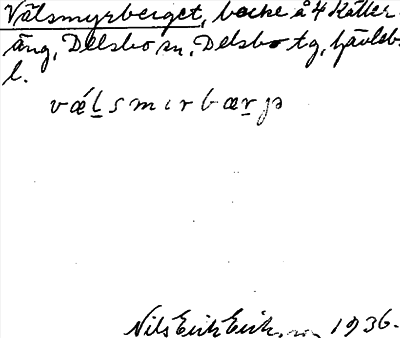 Välsmyrberget, backe å 4 Käller-
äng, Delsbo sn, Delsbo tg, Gävleb.
l.
vǽl̲smɩrbær̲jə
Nils Erik Erik 1936.